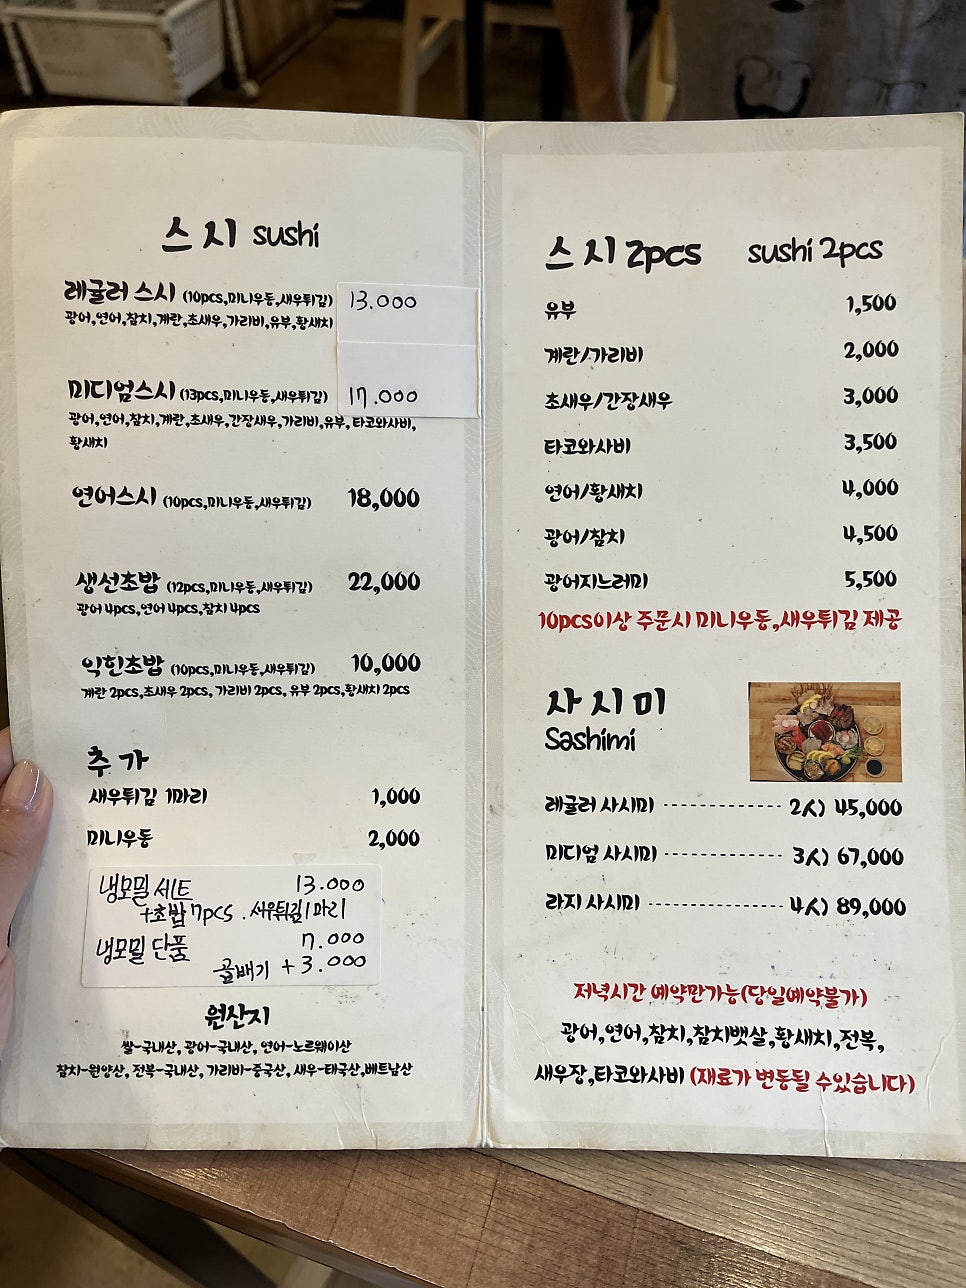 스시 sushi
레귤러 스시 (10pcs,미니우동,새우튀김) 13.000
광어,연어,참치,계란,초새우,가리비,유부,황새치
미디엄스시 (13pcs,미니우동,새우튀김) 17.000
광어,연어,참치,계란,초새우,간장새우,가리비,유부,타코와사비,
황새치
연어스시 (10pcs,미니우동,새우튀김) 18,000
생선초밥 (12pcs,미니우동,새우튀김) 22,000
광어 4pcs,연어 4pcs,참치 4pcs
익힌초밥 (10pcs,미니우동,새우튀김) 10,000
계란 2pcs,초새우 2pcs, 가리비 2pcs, 유부 2pcs,황새치 2pcs
추가
새우튀김 1마리 1,000
미니우동 2,000
냉모밀 세트 13.000
+초밥 7pcs . 새우튀김 1마리
냉모밀 단품 7.000
곱배기 +3.000
원산지
쌀-국내산, 광어-국내산, 연어-노르웨이산
참치-원양산, 전복-국내산, 가리비-중국산, 새우-태국산,베트남산
스시 2pcs sushi 2pcs
유부 1,500
계란/가리비 2,000
초새우/간장새우 3,000
타코와사비 3,500
연어/황새치 4,000
광어/참치 4,500
광어지느러미 5,500
10pcs이상 주문시 미니우동,새우튀김 제공
사시미
Sashimi
레귤러 사시미 ---------------- 2人) 45,000
미디엄 사시미 ---------------- 3人) 67,000
라지 사시미 ------------------ 4人) 89,000
저녁시간 예약만가능(당일예약불가)
광어,연어,참치,참치뱃살,황새치,전복,
새우장,타코와사비 (재료가 변동될 수있습니다)